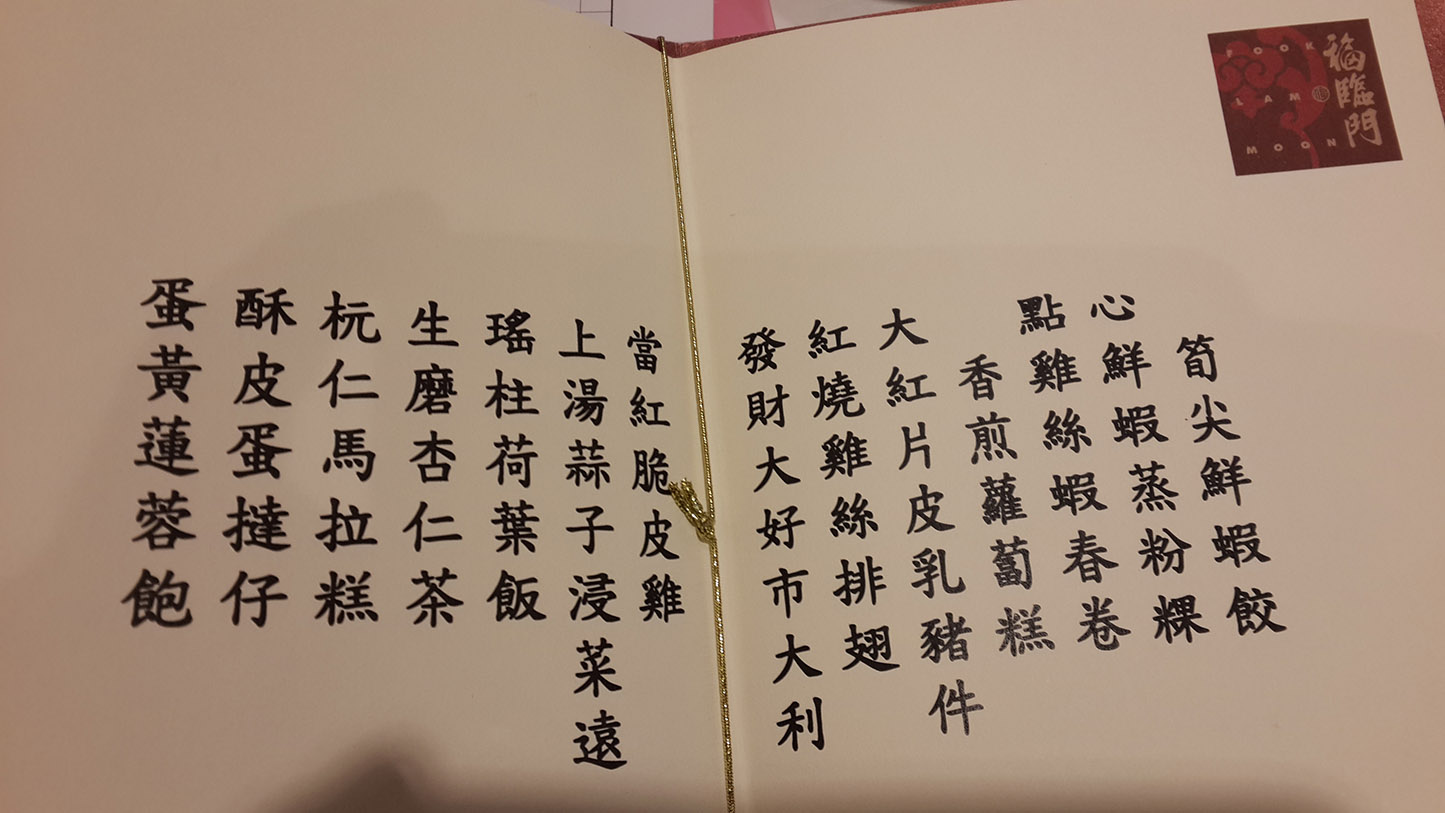 福臨門
FOOK
LAM
MOON
點心
筍尖鮮蝦餃
鮮蝦蒸粉粿
雞絲蝦春卷
香煎蘿蔔糕
大紅片皮乳豬件
紅燒雞絲排翅
發財大好市大利
當紅脆皮雞
上湯蒜子浸菜遠
瑤柱荷葉飯
生磨杏仁茶
杬仁馬拉糕
酥皮蛋撻仔
蛋黃蓮蓉飽